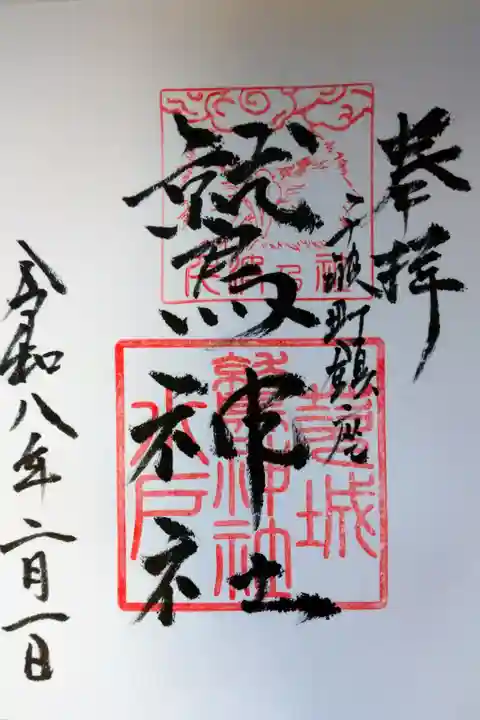 奉拝
千波町鎮座
鷲神社
茨城
鷲神社
水戸
令和八年二月一日